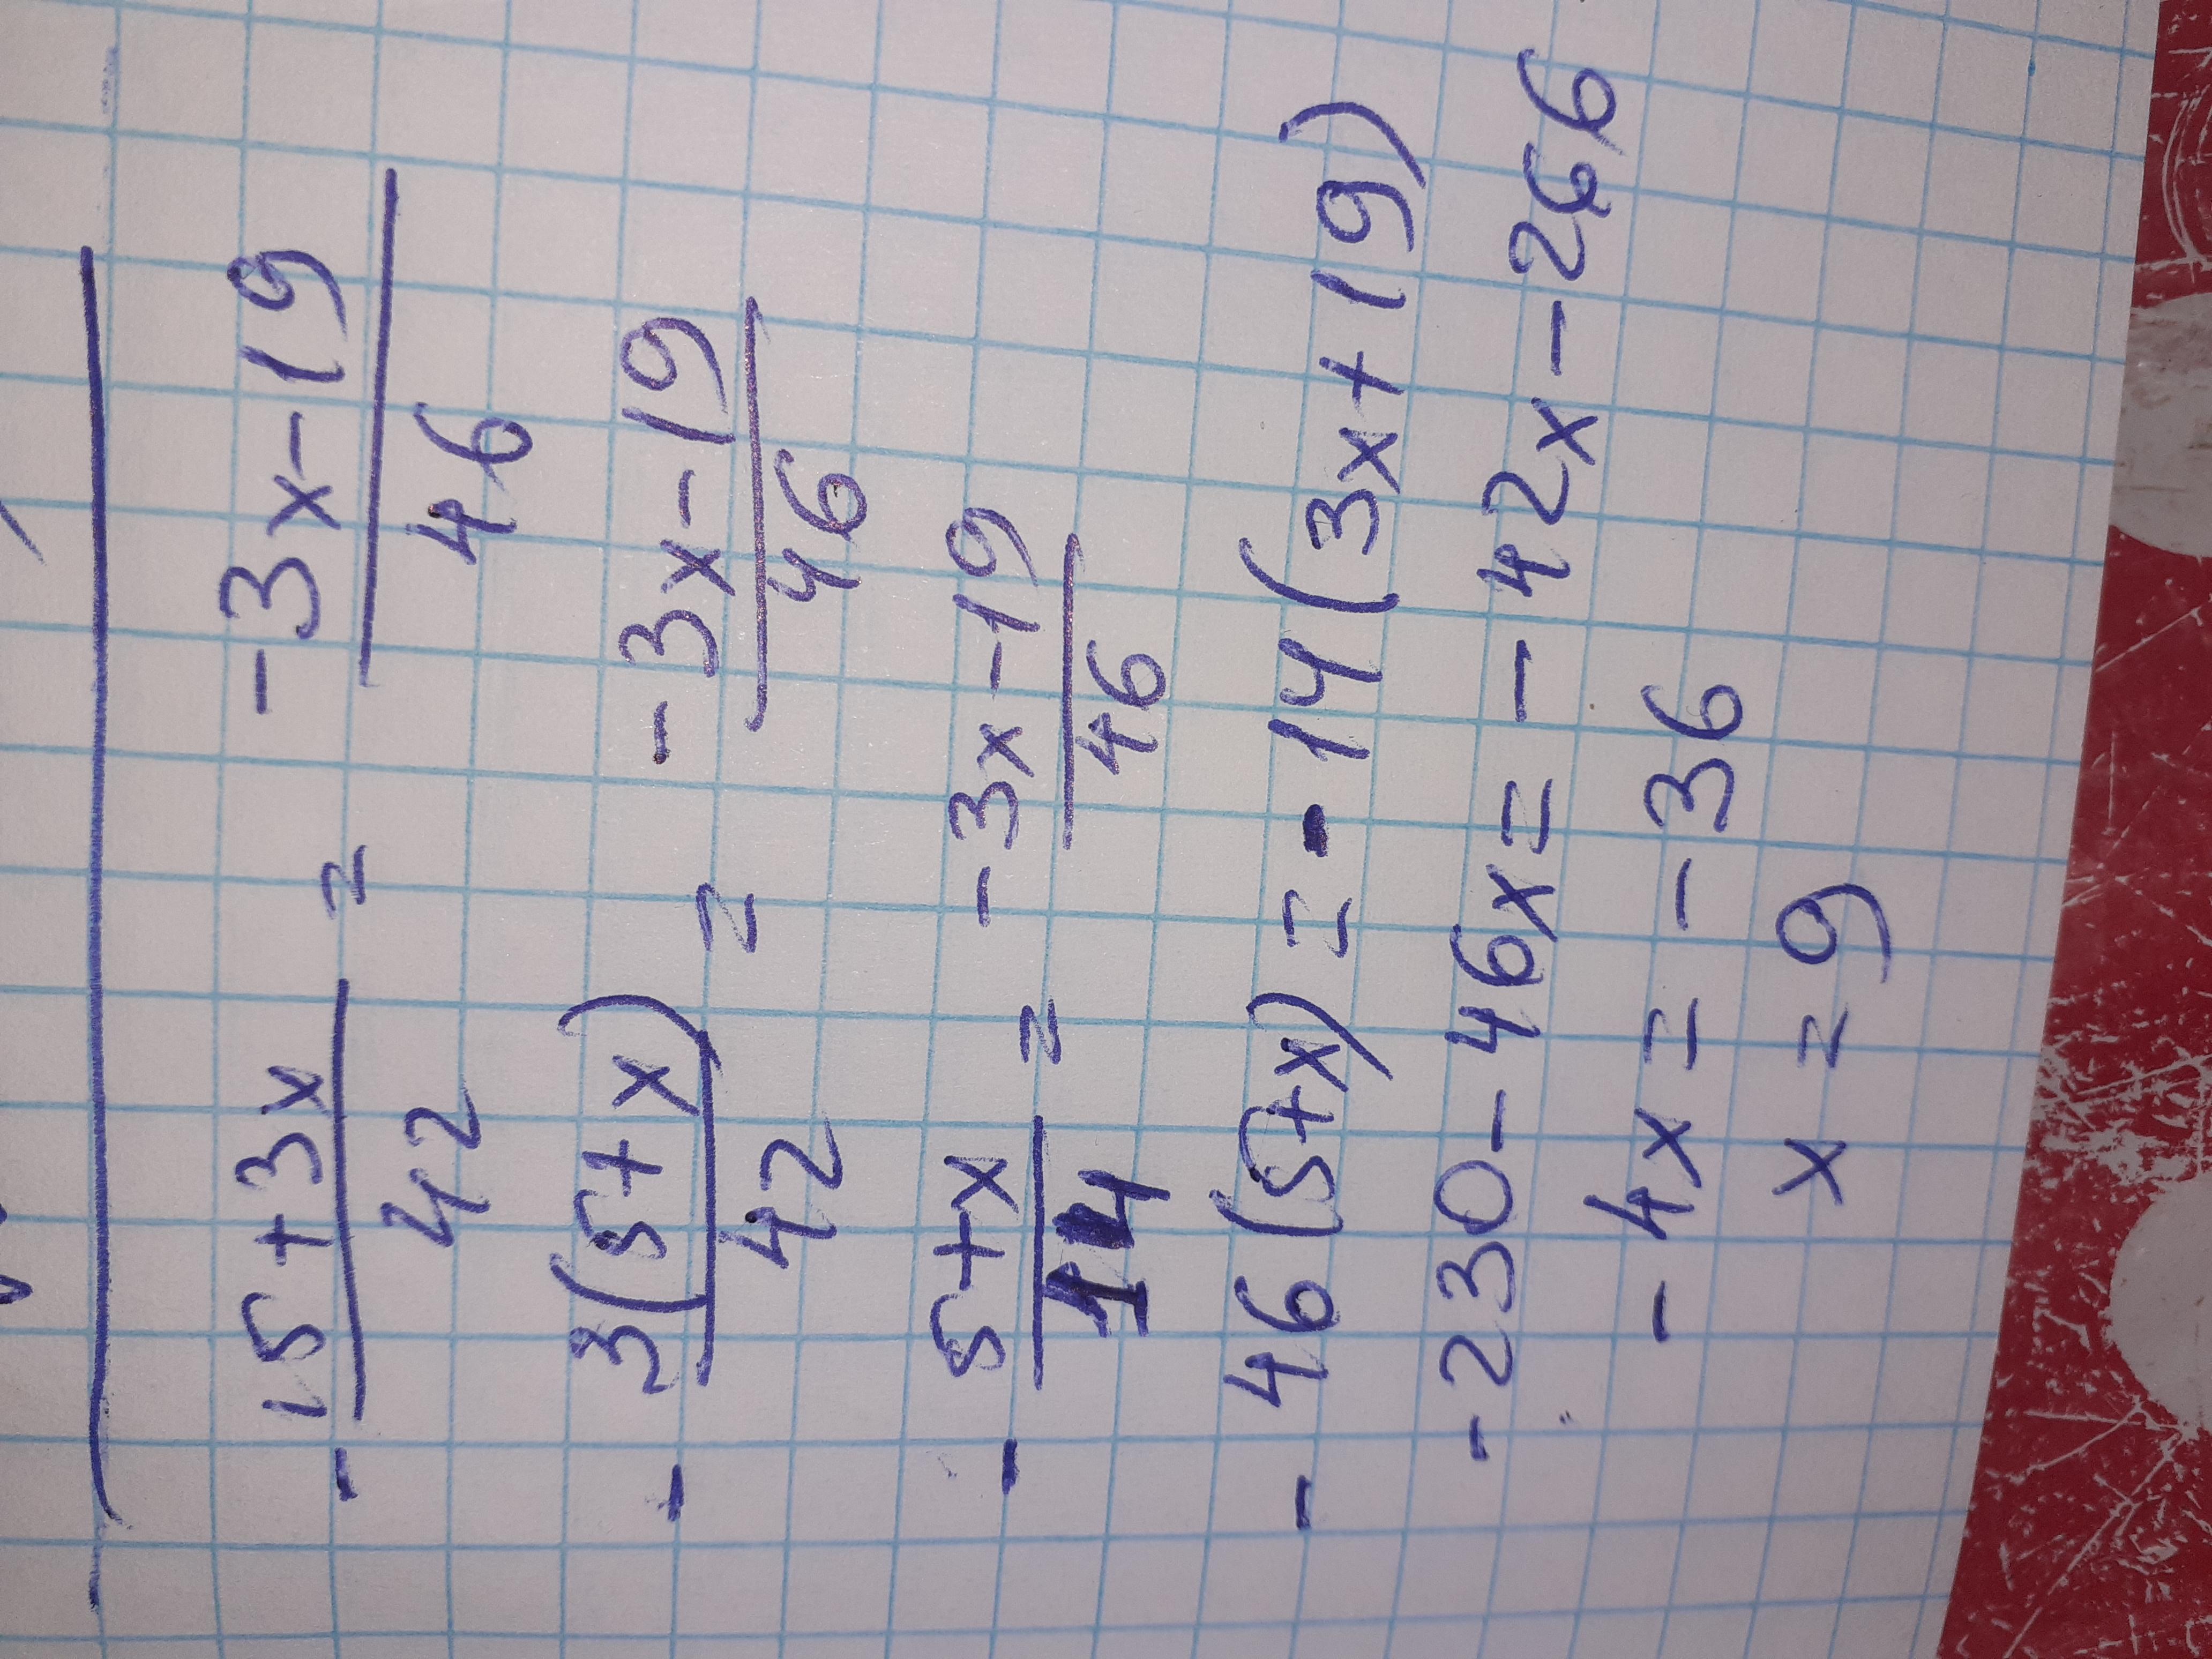 - 15+3x/42 = -3x-19/46
- 3(5+x)/42 = -3x-19/46
- 5+x/14 = -3x-19/46
- 46(5+x) = -14(3x+19)
-230-46x = -42x-266
-4x = -36
x = 9